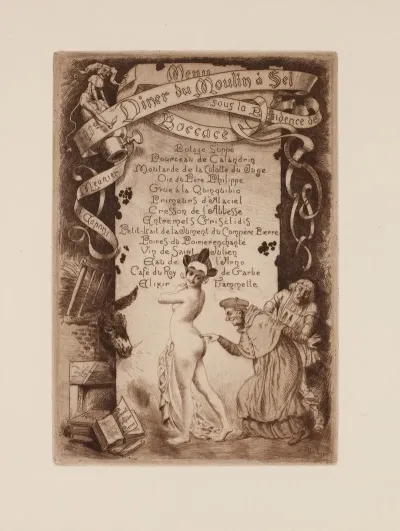 Menu
Diner du Moulin à Sel
sous la Présidence de
Boccace
Meunier
Potage Suppé
Pourceau de Calandrin
Moutarde de la Culotte du Juge
Oie du Père Philippe
Grue à la Quinquibio
Primeurs d'Alaciel
Cresson de l'Abbesse
Entremets Grisélidis
Petit-lait de la Jument du Compère Pierre
Poires du Poirier enchanté
Vin de Saint Julien
Eau de l'Arno
Café du Roy de Garbe
Elixir Fiammette